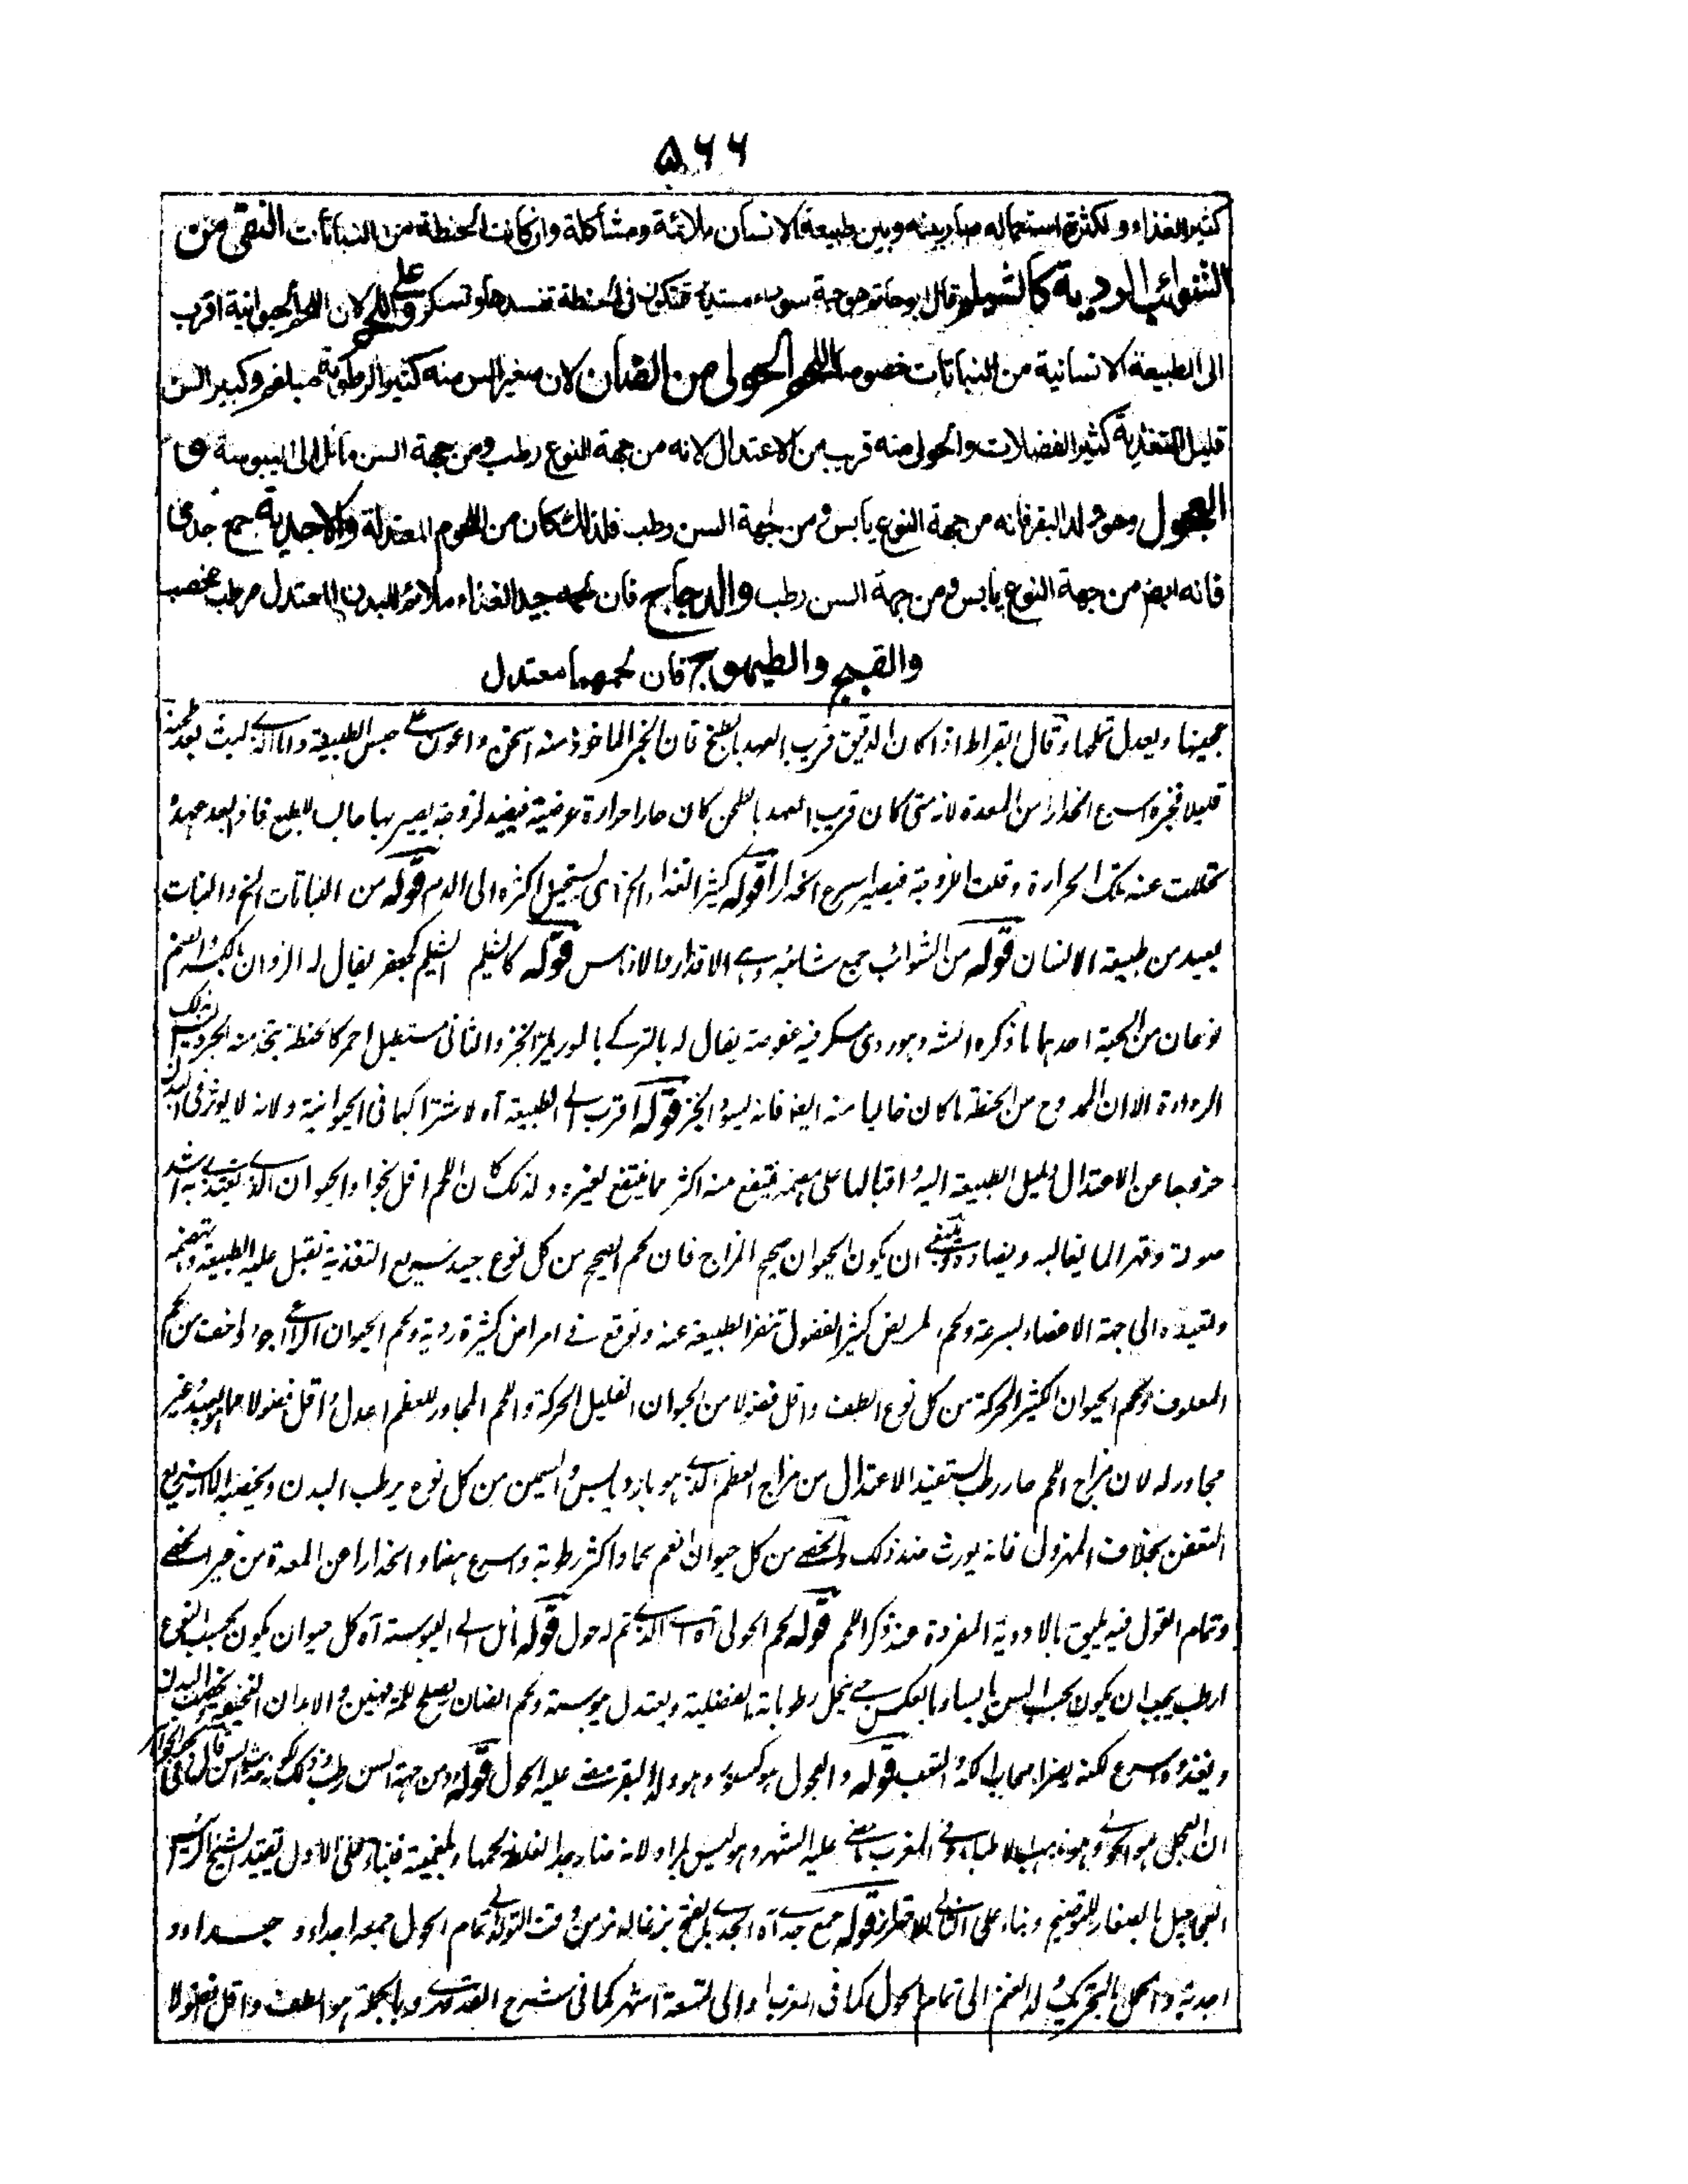 ۵۶۶
كثير الغذاء ولكثرة استعماله صار بينه وبين طبيعة الانسان ملائمة ومشاكلة وان كانت الحنطة من النباتات النقى من
الشوائب الردية كالشيلم قال ابوحاتم هو حبة سوداء مستديرة تتكون فى الحنطة تفسدها وتسكر وعلى اللحم لان اللحم الحيوانية اقرب
الى الطبيعة الانسانية من النباتات خصوصا اللحم الحولى من الضأن لان صغير السن منه كثير الرطوبة مبلغم وكبير السن
قليل التغذية كثير الفضلات والحولى منه قريب من الاعتدال لانه من جهة النوع رطب ومن جهة السن مائل الى اليبوسة و
العجول وهو ولد البقر فانه من جهة النوع يابس ومن جهة السن رطب فلذلك كان من اللحوم المعتدلة والاجدية جمع جدى
فانه ايضا من جهة النوع يابس ومن جهة السن رطب والدجاج فان لحمه جيد الغذاء ملائم للبدن المعتدل مرطب مخصب
والقبج والطيهوج فان لحمهما معتدل
عجينها ويعدل ثقلها وقال بقراط اذا كان الدقيق قريب العهد بالطحن فان الخبز الماخوذ منه اسخن واعون على حبس الطبيعة واما الذى لبث بعد طحنه
قليلا فخبزه اسرع انحدارا من المعدة لانه متى كان قريب العهد بالطحن كان حارا حرارة عرضية فيفيد لزوجة يصير بها حابسا للطبع فاذا بعد عهده
تحللت عنه تلك الحرارة وقلت اللزوجة فيصير اسرع انحدارا قوله كثير الغذاء الخ اى يستحيل اكثره الى الدم قوله من النباتات الخ والنبات
بعيد من طبيعة الانسان قوله من الشوائب جمع شائبة وهى الاقذار والادناس قوله كالشيلم الشيلم كجعفر يقال له الزوان بالكسر والضم
نوعان من الحبة احدهما ما ذكره الشه وهو ردى مسكر فيه عفوصة يقال له بالتركے والثانى مستطيل احمر كالحنطة يتخذ منه الخبز وليس بذلك
الرداءة الا ان الممدوح من الحنطة ما كان خاليا منه ايضا فانه يسود الخبز قوله اقرب الى الطبيعة آه لاشتراكهما فى الحيوانية ولانه لا يوثر فى البدن
خروجا عن الاعتدال لميل الطبيعة اليه واقبالها على هضمه فتنتفع منه اكثر مما تنتفع بغيره ولذلك كان اللحم اقل بخارا والحيوان الذى يغتذى به اشد
صولة وقهرا لما يغالبه ويضاده وينبغى ان يكون الحيوان صحيح المزاج فان لحم الصحيح من كل نوع جيد سريع التغذية تقبل عليه الطبيعة وتهضمه
وتنفيذه الى جهة الاعضاء بسرعة ولحم المريض كثير الفضول تنفر الطبيعة عنه ويوقع فى امراض كثيرة ردية ولحم الحيوان الراعى اجود واخف من لحم
المعلوف ولحم الحيوان الكثير الحركة من كل نوع الطف واقل فضولا من الحيوان القليل الحركة واللحم المجاور للعظم اعدل واقل فضولا مما هو بعيد غير
مجاور له لان مزاج اللحم حار رطب يستفيد الاعتدال من مزاج العظم الذى هو بارد يابس والسمين من كل نوع يرطب البدن ويخصبه الا انه سريع
التعفن بخلاف المهزول فانه يورث ضد ذلك والخصى من كل حيوان انعم لحما واكثر رطوبة واسرع هضما وانحدارا عن المعدة من غير الخصى
وتمام القول فيه يليق بالادوية المفردة عند ذكر اللحم قوله لحم الحولى آه اى الذى تم له حول قوله مائل الى اليبوسة آه كل حيوان يكون بحسب النوع
ارطب يجب ان يكون بحسب السن يابسا وبالعكس حتى يحلل رطوباته الفضلية ويعتدل يبوسته ولحم الضان يصلح للمرتاضين والابدان
ويغذوه اسرع لكنه يضر اصحاب قوله والعجول هو كسنور وهو ولد البقر مضت عليه الحول قوله ومن جهة السن رطب وذلك لكونه
ان العجل هو الحولى وهو مذهب الاطباء وفى المغرب ما مضى عليه الشهر وهو ليس بمراد لانه ضار جدا لغلظ لحمها فبناء على الاول تقييد الشيخ الرئيس
العجاجيل بالصغار للتوضيح وبناء على الثانى للاحتراز قوله جمع جدى آه الجدى بالفتح بزغاله نر من وقت التولد الى تمام الحول جمعه اجداء و جداء و
اجدية والحمل بالتحريك ولد الغنم الى تمام الحول كما فى او الى تسعة اشهر كما فى شرح وبالجملة هو الطف واقل فضولا